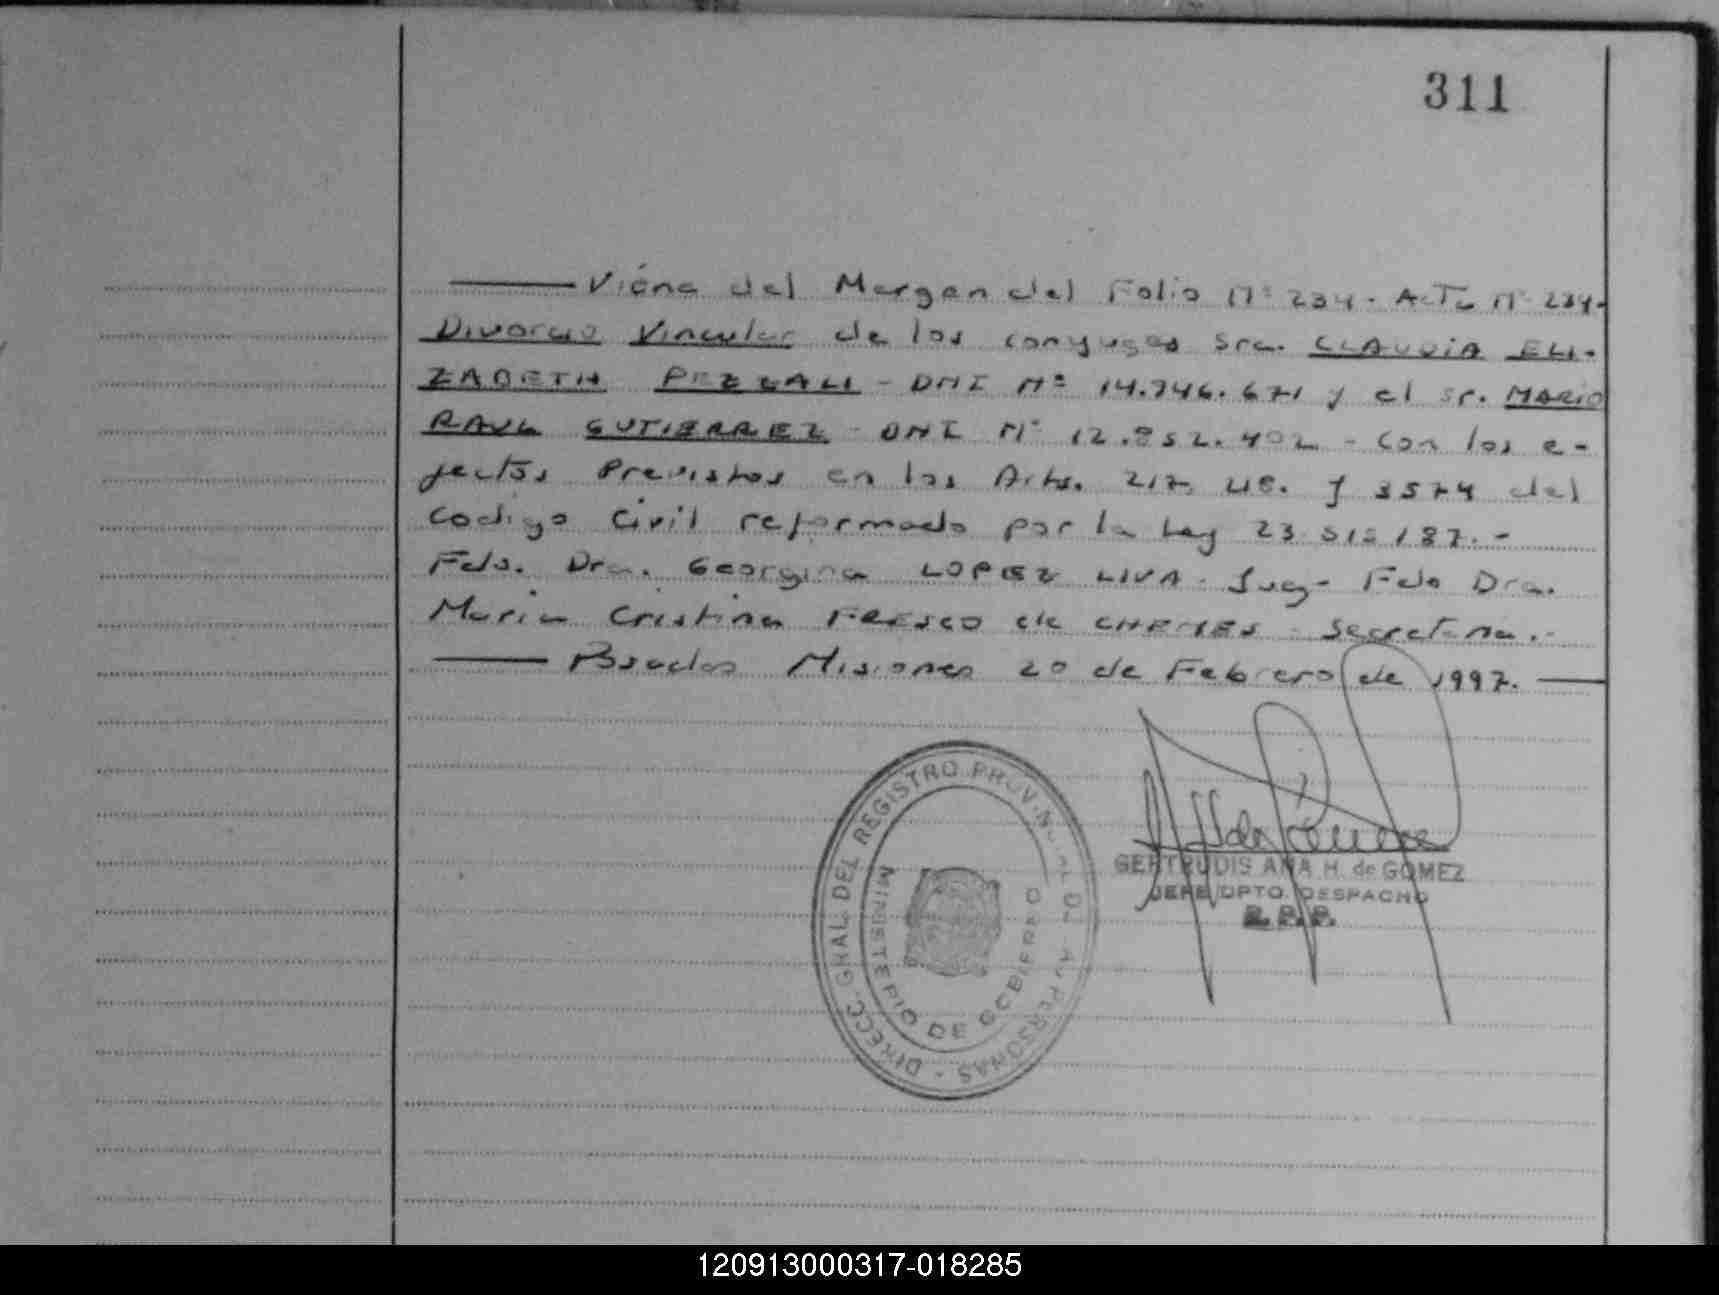 311
Viene del Margen del Folio Nº 234. Acta Nº 234.
Divorcio Vincular de los conyuges Sra. CLAUDIA ELI-
ZABETH PEZZALI - DNI Nº 14.746.671 y el Sr. MARIO
RAUL GUTIERREZ - DNI Nº 12.852.402 - con los e-
fectos Previstos en los Arts. 217, 218. y 3574 del
Codigo Civil reformado por la Ley 23.515/87.-
Fdo. Dra. Georgina LOPEZ LIVA. Juez- Fdo Dra.
Maria Cristina FRESCO de CHEMES - Secretaria.-
Posadas Misiones 20 de Febrero de 1997.
DIRECC. GRAL. DEL REGISTRO PROVINCIAL DE PERSONAS -
MINISTERIO DE GOBIERNO
GERTRUDIS ANA H. de GOMEZ
JEFE DPTO. DESPACHO
R.P.P.
120913000317-018285